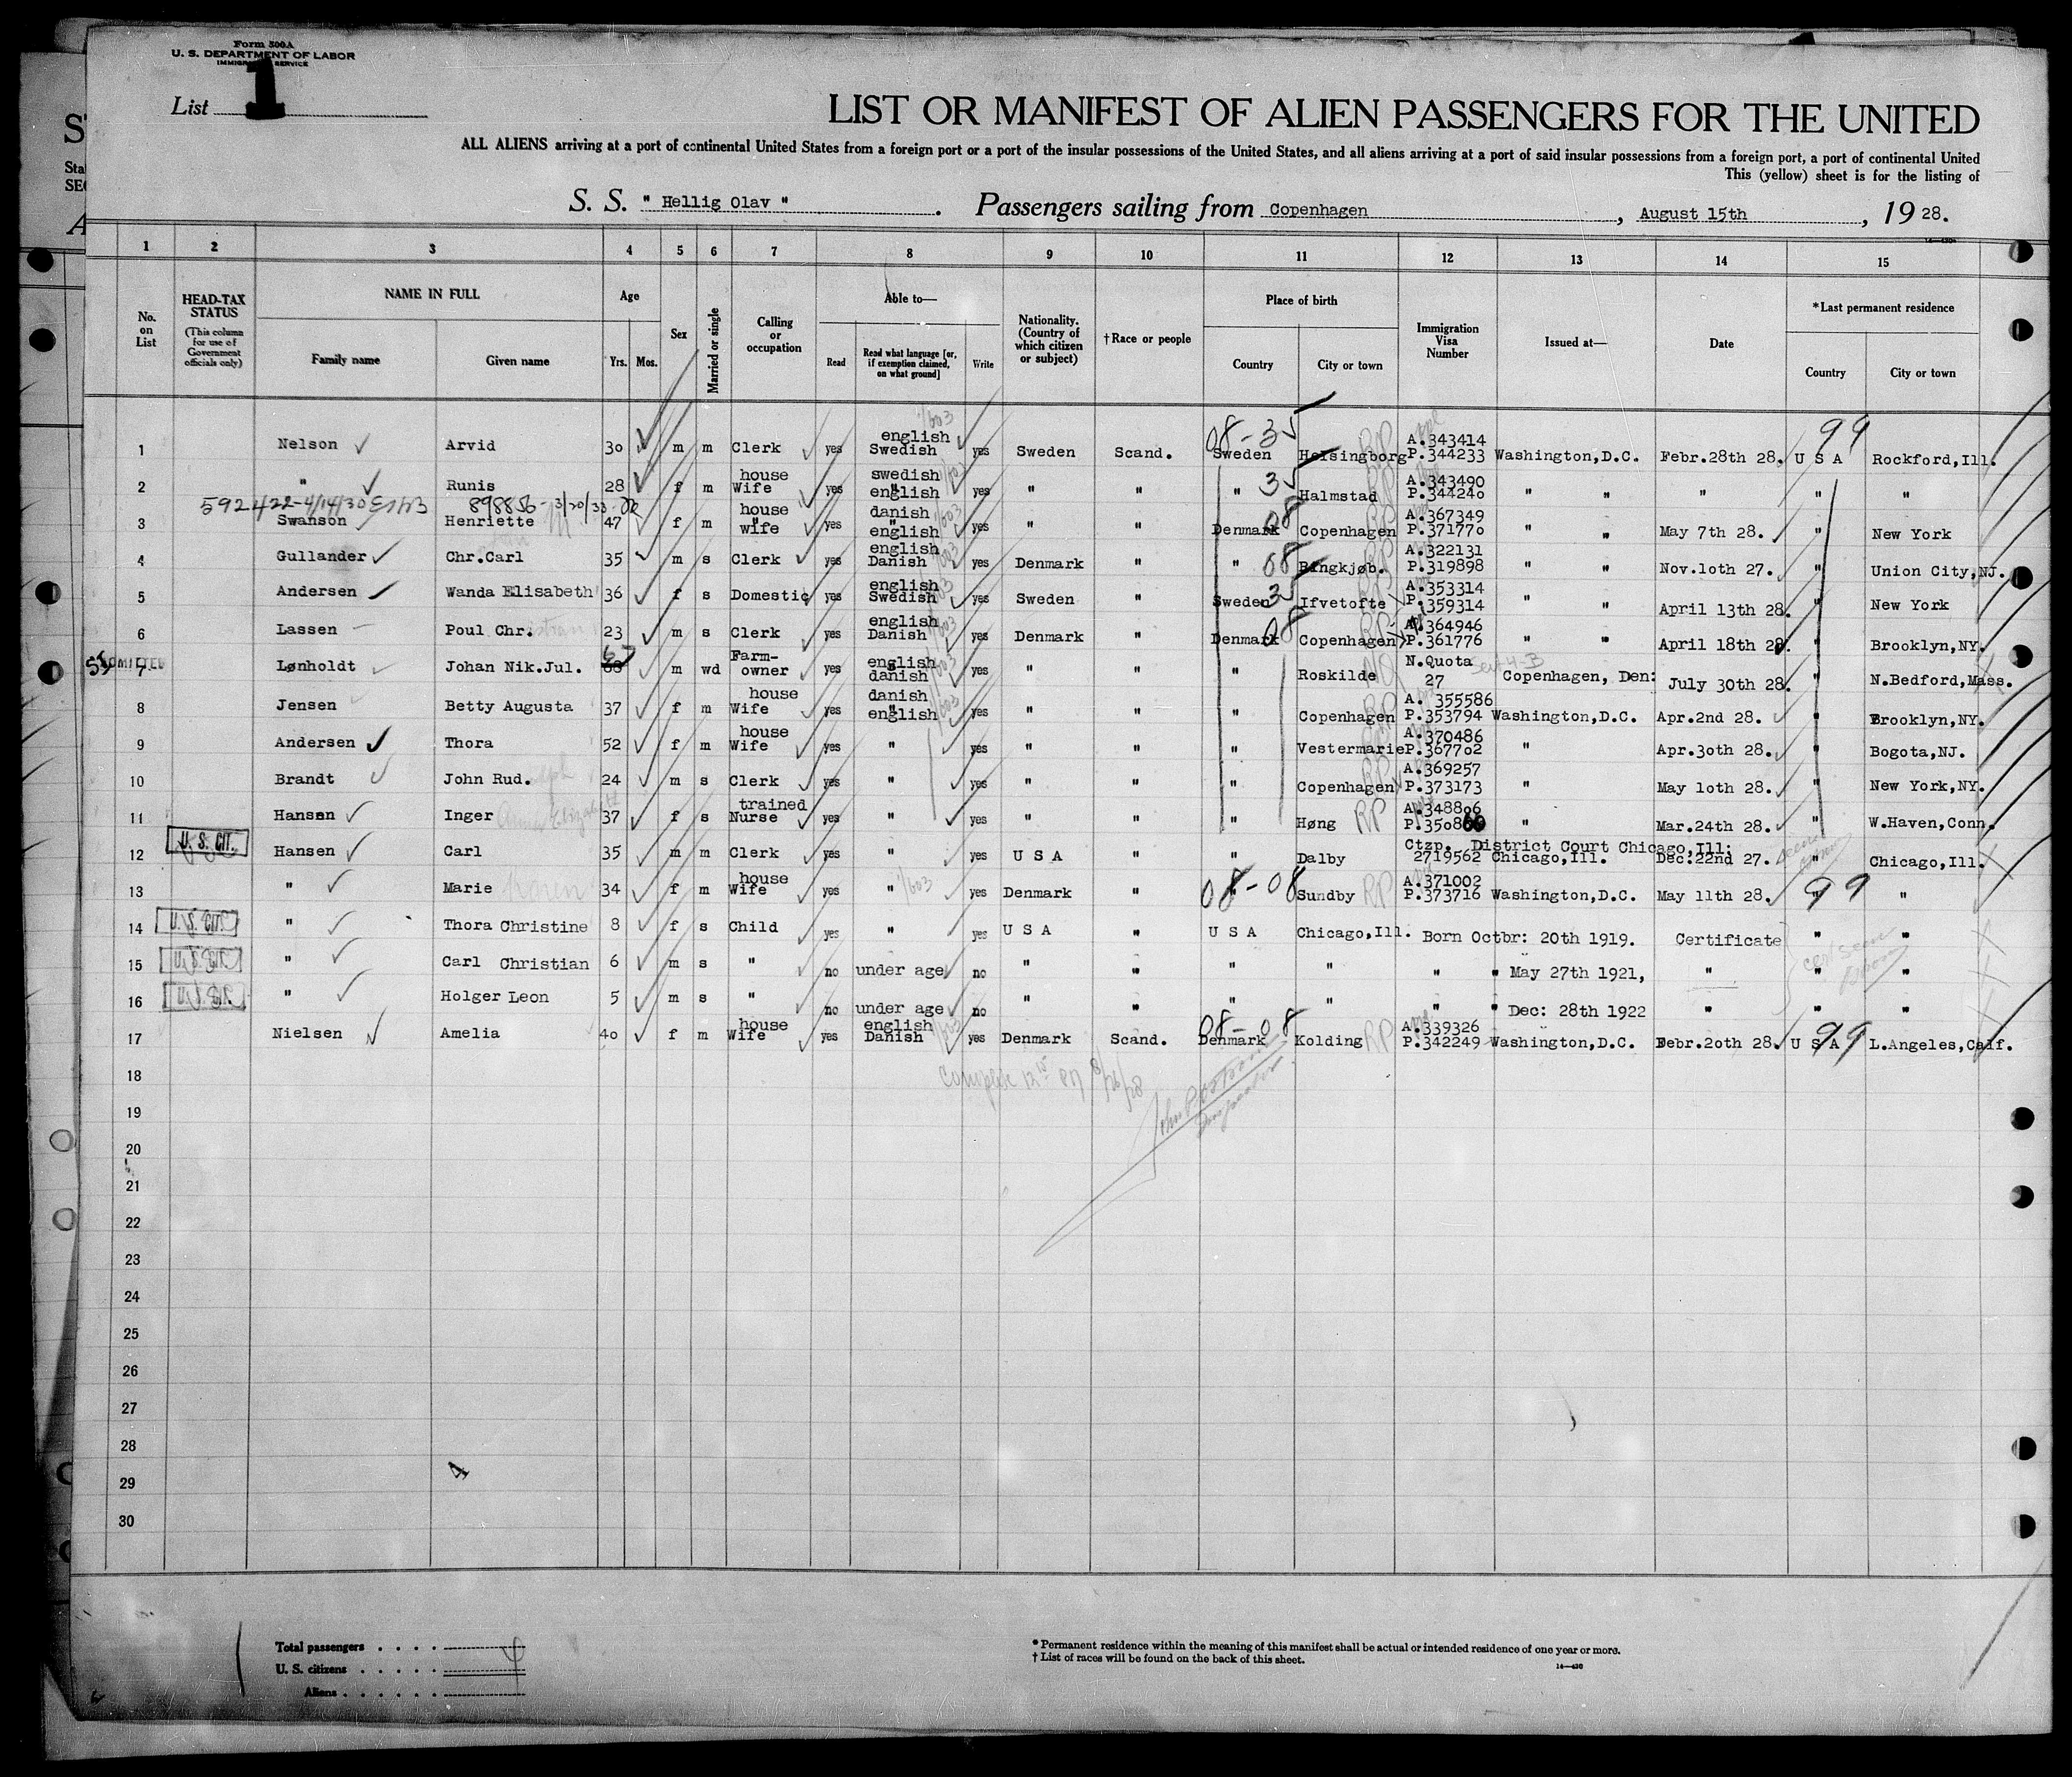 Form 500A
U. S. DEPARTMENT OF LABOR
IMMIGRATION SERVICE
List 1
LIST OR MANIFEST OF ALIEN PASSENGERS FOR THE UNITED
ALL ALIENS arriving at a port of continental United States from a foreign port or a port of the insular possessions of the United States, and all aliens arriving at a port of said insular possessions from a foreign port, a port of continental United
This (yellow) sheet is for the listing of
S. S. " Hellig Olav " . Passengers sailing from Copenhagen , August 15th , 19 28.
1 2 3 4 5 6 7 8 9 10 11 12 13 14 15
No. on List
HEAD-TAX STATUS
(This column for use of Government officials only)
NAME IN FULL
Family name Given name
Age
Yrs. Mos.
Sex
Married or single
Calling or occupation
Able to—
Read
Read what language [or, if exemption claimed, on what ground]
Write
Nationality. (Country of which citizen or subject)
†Race or people
Place of birth
Country City or town
Immigration Visa Number
Issued at—
Date
*Last permanent residence
Country City or town
1 Nelson Arvid 30 m m Clerk yes english Swedish yes Sweden Scand. 08-35 Sweden Helsingborg A.343414 P.344233 Washington,D.C. Febr.28th 28. 99 U S A Rockford,Ill.
2 " Runis 28 f m house Wife yes swedish english yes " " " 35 Halmstad A.343490 P.344240 " " " " "
592422-4/14/30 898856-3/20/33
3 Swanson Henriette 47 f m house wife yes danish english yes " " Denmark 08 Copenhagen A.367349 P.371770 " " May 7th 28. " New York
4 Gullander Chr.Carl 35 m s Clerk yes english Danish yes Denmark " " 08 Ringkjøb. A.322131 P.319898 " " Nov.10th 27. " Union City,NJ.
5 Andersen Wanda Elisabeth 36 f s Domestic yes english Swedish yes Sweden " Sweden 35 Ifvetofte A.353314 P.359314 " " April 13th 28. " New York
6 Lassen Poul Chr. 23 m s Clerk yes english Danish yes Denmark " Denmark 08 Copenhagen A.364946 P.361776 " " April 18th 28. " Brooklyn,NY.
ADMITTED
7 Lønholdt Johan Nik.Jul. 68 67 m wd Farm-owner yes english danish yes " " " Roskilde N.Quota 27 Copenhagen, Den: July 30th 28. " N.Bedford,Mass.
8 Jensen Betty Augusta 37 f m house Wife yes danish english yes " " " Copenhagen A. 355586 P.353794 Washington,D.C. Apr.2nd 28. " Brooklyn,NY.
9 Andersen Thora 52 f m house Wife yes " yes " " " Vestermarie A.370486 P.367702 " Apr.30th 28. " Bogota,NJ.
10 Brandt John Rud. 24 m s Clerk yes " yes " " " Copenhagen A.369257 P.373173 " May 10th 28. " New York,NY.
11 Hansen Inger 37 f s trained Nurse yes " yes " " " Høng RP A.348806 P.350860 " Mar.24th 28. " W.Haven,Conn.
U. S. CIT.
12 Hansen Carl 35 m m Clerk yes " yes U S A " " Dalby Ctzp. 2719562 District Court Chicago,Ill: Chicago,Ill. Dec.22nd 27. " Chicago,Ill.
13 " Marie 34 f m house Wife yes " yes Denmark " 08-08 " Sundby RP A.371002 P.373716 Washington,D.C. May 11th 28. 99 " "
14 U. S. CIT. " Thora Christine 8 f s Child yes " yes U S A " U S A Chicago,Ill. Born Octbr: 20th 1919. Certificate " "
15 U. S. CIT. " Carl Christian 6 m s " no under age no " " " " " " May 27th 1921, " " "
16 U. S. CIT. " Holger Leon 5 m s " no under age no " " " " " " Dec: 28th 1922 " " "
17 Nielsen Amelia 40 f m house Wife yes english Danish yes Denmark Scand. 08-08 Denmark Kolding RP A.339326 P.342249 Washington,D.C. Febr.20th 28. 99 U S A L.Angeles,Calf.
18
19
20
21
22
23
24
25
26
27
28
29
4
30
Total passengers . . . .
U. S. citizens . . . . .
Aliens . . . . . .
* Permanent residence within the meaning of this manifest shall be actual or intended residence of one year or more.
† List of races will be found on the back of this sheet.